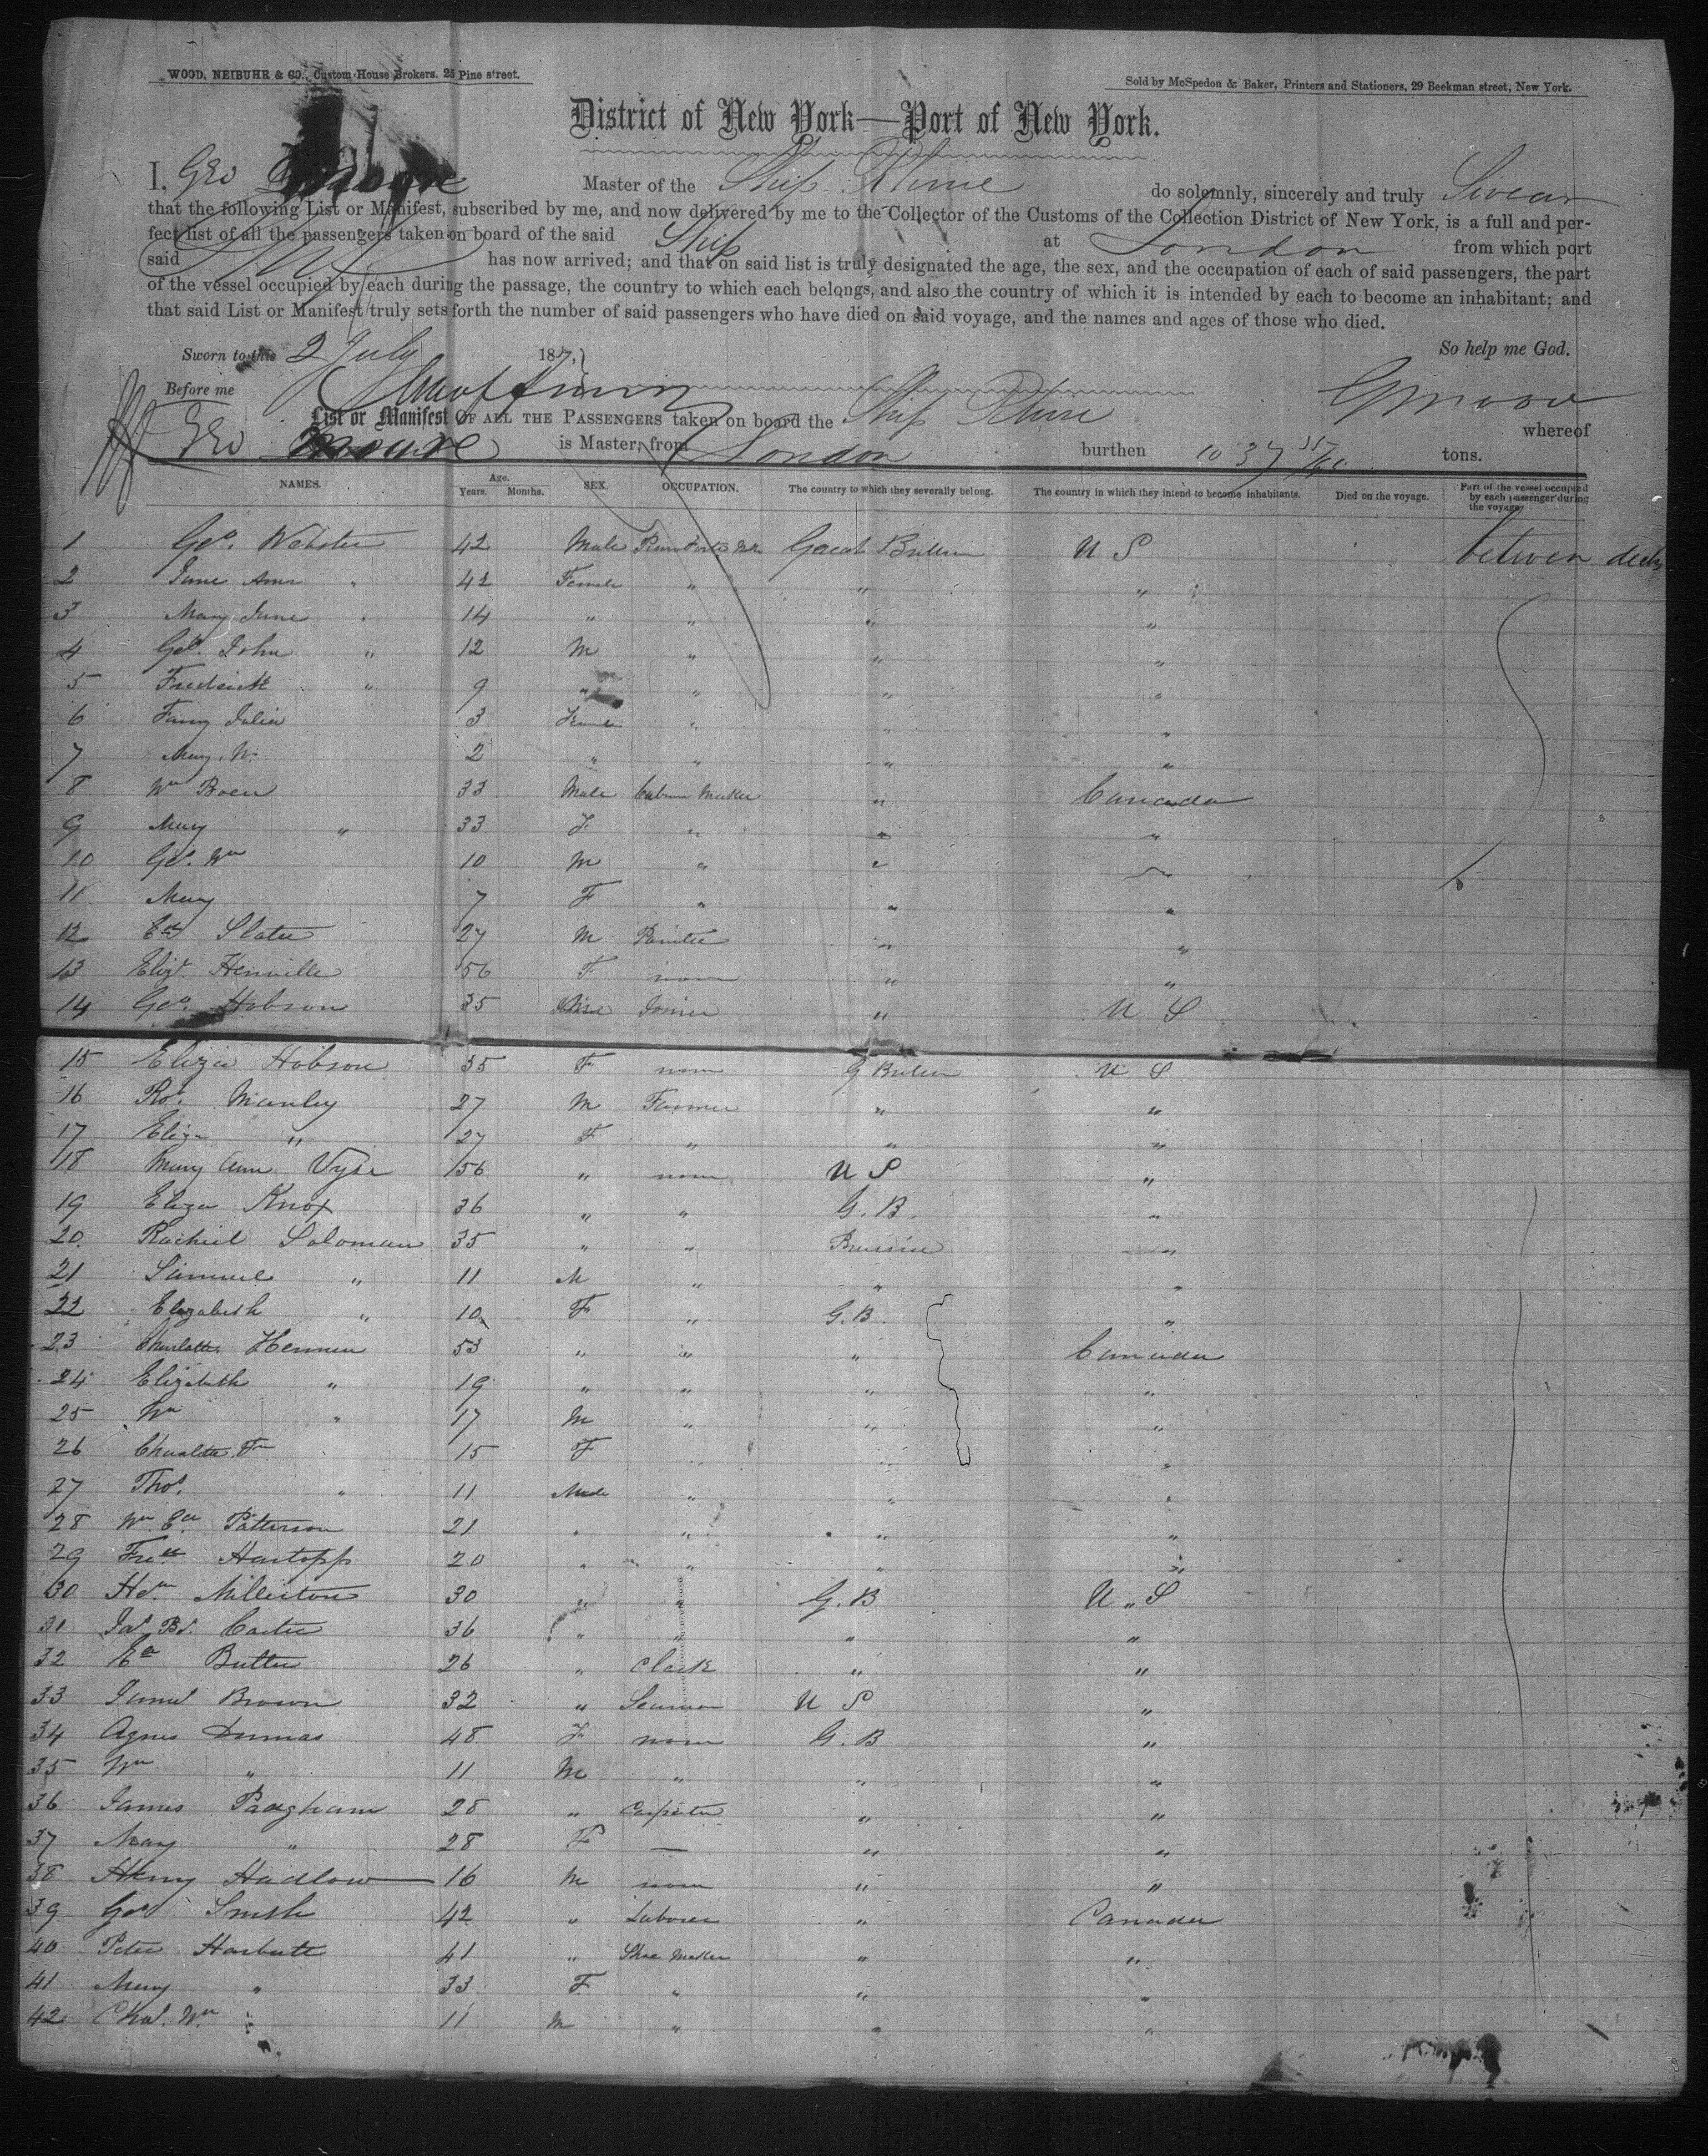 WOOD, NEIBUHR & CO., Custom House Brokers. 25 Pine street.
Sold by McSpedon & Baker, Printers and Stationers, 29 Beekman street, New York.
District of New York—Port of New York.
I, Geo Master of the Ship Rhine do solemnly, sincerely and truly Swear
that the following List or Manifest, subscribed by me, and now delivered by me to the Collector of the Customs of the Collection District of New York, is a full and per-
fect list of all the passengers taken on board of the said Ship at London from which port
said has now arrived; and that on said list is truly designated the age, the sex, and the occupation of each of said passengers, the part
of the vessel occupied by each during the passage, the country to which each belongs, and also the country of which it is intended by each to become an inhabitant; and
that said List or Manifest truly sets forth the number of said passengers who have died on said voyage, and the names and ages of those who died.
Sworn to this 2 July 187 So help me God.
Before me
List or Manifest OF ALL THE PASSENGERS taken on board the Ship Rhine whereof
Geo Moore is Master, from London burthen 1037 tons.
NAMES. Age. Years. Months. SEX. OCCUPATION. The country to which they severally belong. The country in which they intend to become inhabitants. Died on the voyage. Part of the vessel occupied by each passenger during the voyage
1 Geo. Webster 42 Male Great Britain U S between decks
2 Jane Ann " 42 Female " " "
3 Mary Jane " 14 " " " "
4 Geo. John " 12 M " " "
5 Frederick " 9 " " " "
6 Fanny Julia 3 Female " " "
7 Mary W. 2 " " " "
8 Wm Boen 33 Male Cabinet Maker " Canada
9 Mary " 33 F " " "
10 Geo. Wm 10 M " " "
11 Mary 7 F " " "
12 Slater 27 M Painter " "
13 Eliz. Henville 56 F none " "
14 Geo. Hobson 35 Joiner " U S
15 Eliza Hobson 35 F none G Britain U S
16 Rob. Manley 27 M Farmer " "
17 Eliza " 27 F " " "
18 Mary Ann Vyse 56 " none U S "
19 Eliza Knox 36 " " G. B. "
20 Rachiel Soloman 35 " " "
21 Samuel " 11 M " " "
22 Elizabeth " 10 F " G. B. "
23 Charlotte 53 " " " Canada
24 Elizabeth " 19 " " " "
25 Wm " 17 M " " "
26 Charlotte 15 F " " "
27 Thos. " 11 Male " " "
28 Wm Patterson 21 " " " "
29 Hartopp 20 " " " "
30 30 " " G. B U " S
31 Carter 36 " " " "
32 Butler 26 " Clark " "
33 Brown 32 " Seaman U S "
34 Agnes Dumas 48 F none G. B "
35 Wm " 11 M " " "
36 James Padgham 28 " Carpenter " "
37 Mary " 28 F — " "
38 Henry Hadlow 16 M none " "
39 Geo Smith 42 " Laborer " Canada
40 Peter Harbutt 41 " Shoe Maker " "
41 Mary " 33 F " " "
42 Chas. Wm " 11 M " " "